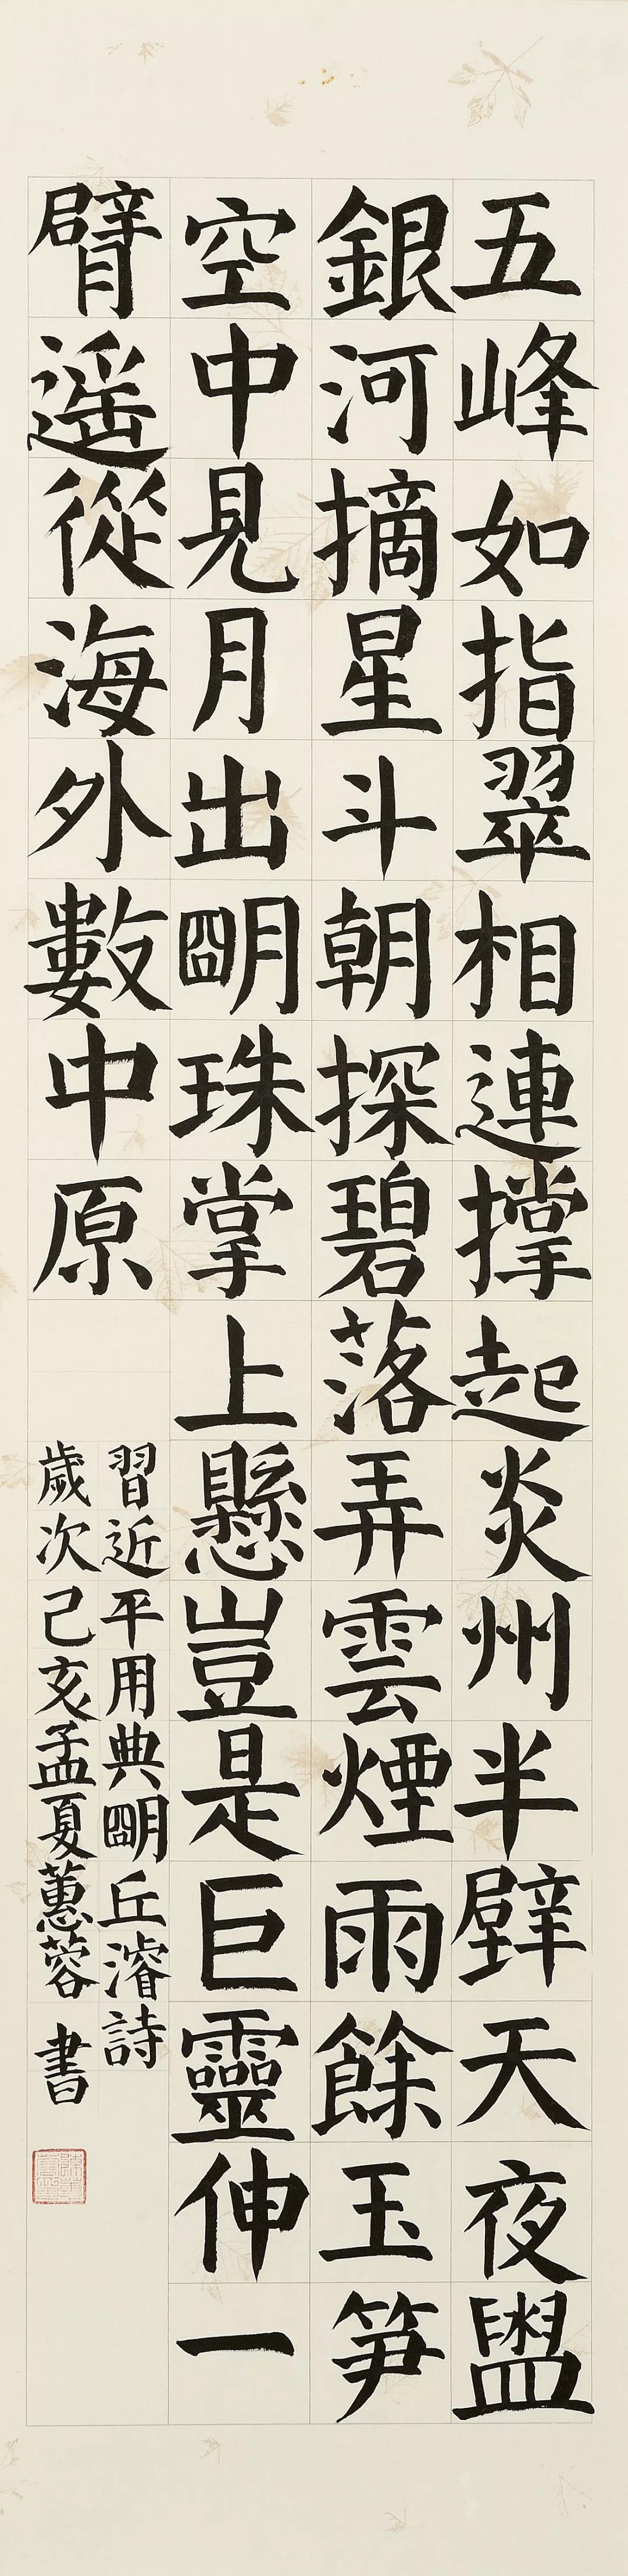 五峰如指翠相連撐起炎州半壁天夜盥
銀河摘星斗朝探碧落弄雲煙雨餘玉笋
空中見月出朙珠掌上懸豈是巨靈伸一
臂遥從海外數中原
習近平用典朙丘濬詩
歲次己亥孟夏蕙蓉書